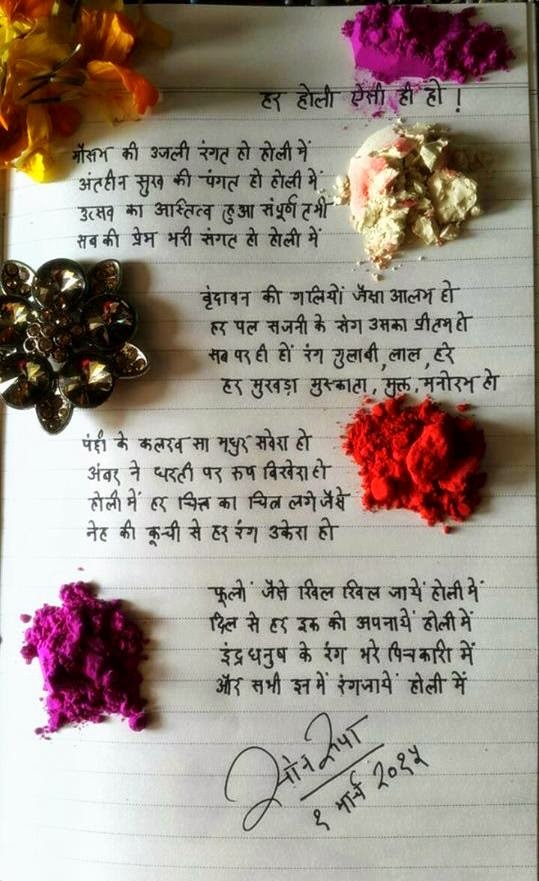 हर होली ऐसी ही हो !
मौसम की उजली रंगत हो होली में
अंतहीन सुख की पंगत हो होली में
उत्सव का अस्तित्व हुआ संपूर्ण तभी
सबकी प्रेम भरी संगत हो होली में
वृंदावन की गलियों जैसा आलम हो
हर पल सजनी के संग उसका प्रीतम हो
सब पर ही हों रंग गुलाबी, लाल, हरे
हर मुखड़ा मुस्काता, मुक्त, मनोरम हो
पंछी के कलरव सा मधुर सवेरा हो
अंबर ने धरती पर रूप बिखेरा हो
होली में हर चित्त का चित्र लगे जैसे
नेह की कूची से हर रंग उकेरा हो
फूलों जैसे खिल खिल जायें होली में
दिल से हर इक को अपनायें होली में
इंद्रधनुष के रंग भरे पिचकारी में
और सभी इनमें रंग जायें होली में
१ मार्च २०१५